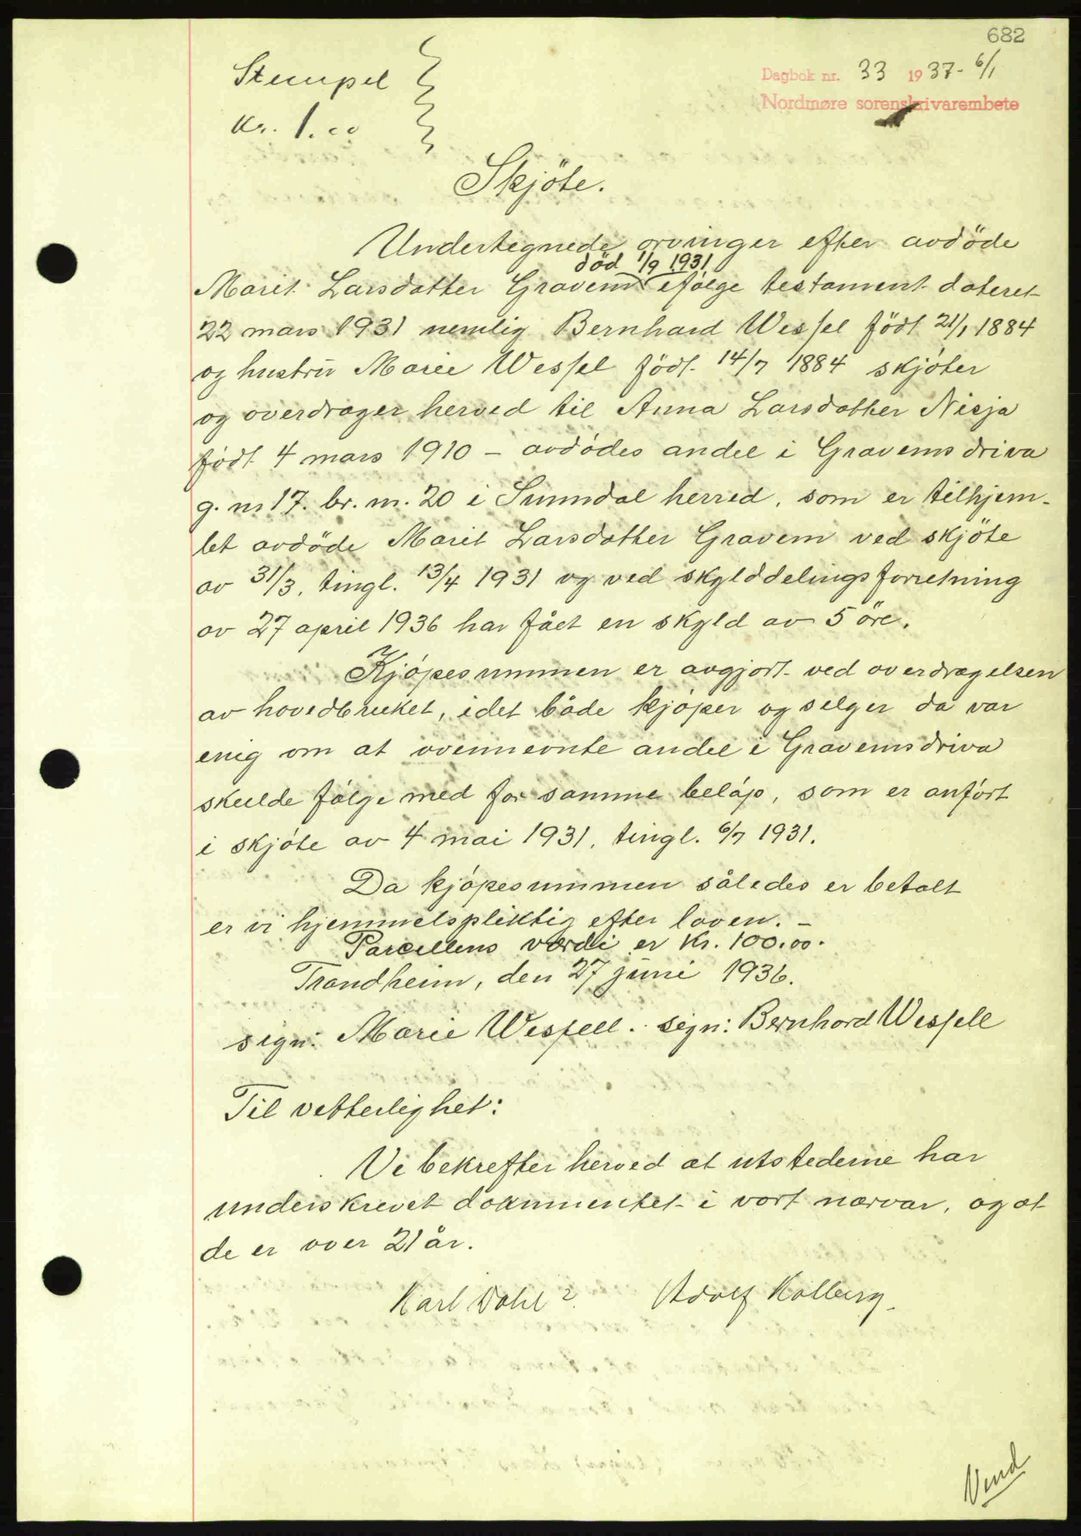 682
Stempel
Kr. 1.00
Dagbok nr. 33 1937 - 6/1
Nordmøre sorenskrivarembete
Skjöte.
Undertegnede arvinger efter avdöde
död 1/9 1931
Marit Larsdatter Gravem ifölge testament dateret
22 mars 1931 nemlig Bernhard Wessel födt 21/1 1884
og hustrü Marie Wessel födt 14/7 1884 skjöter
og overdrager herved til Anna Larsdatter Nisja
födt 4 mars 1910 - avdödes andel i Gravemsdriva
g. nr 17. br. nr. 20 i Sunndal herred, som er tilhjem-
let avdöde Marit Larsdatter Gravem ved skjöte
av 31/3, tingl. 13/4 1931 og ved skylddelingsforretning
av 27 april 1936 har fået en skyld av 5 öre.
Kjöpesummen er avgjort ved overdragelsen
av hovedbruket, idet både kjöper og selger da var
enig om at ovennevnte andel i Gravemsdriva
skulde fölge med for samme belöp, som er anfört
i skjöte av 4 mai 1931, tingl. 6/7 1931.
Da kjöpesummen således er betalt
er vi hjemmelspliktig efter loven. -
Parcellens værdi er Kr. 100.00.
Trondheim, den 27 juni 1936.
sign: Marie Wessell. sign: Bernhard Wessell
Til vetterlighet:
Vi bekrefter herved at utstederne har
underskrevet dokumentet i vort nærvær, og at
de er over 21 år.
Karl Dahl Adolf Kolberg.
Vend